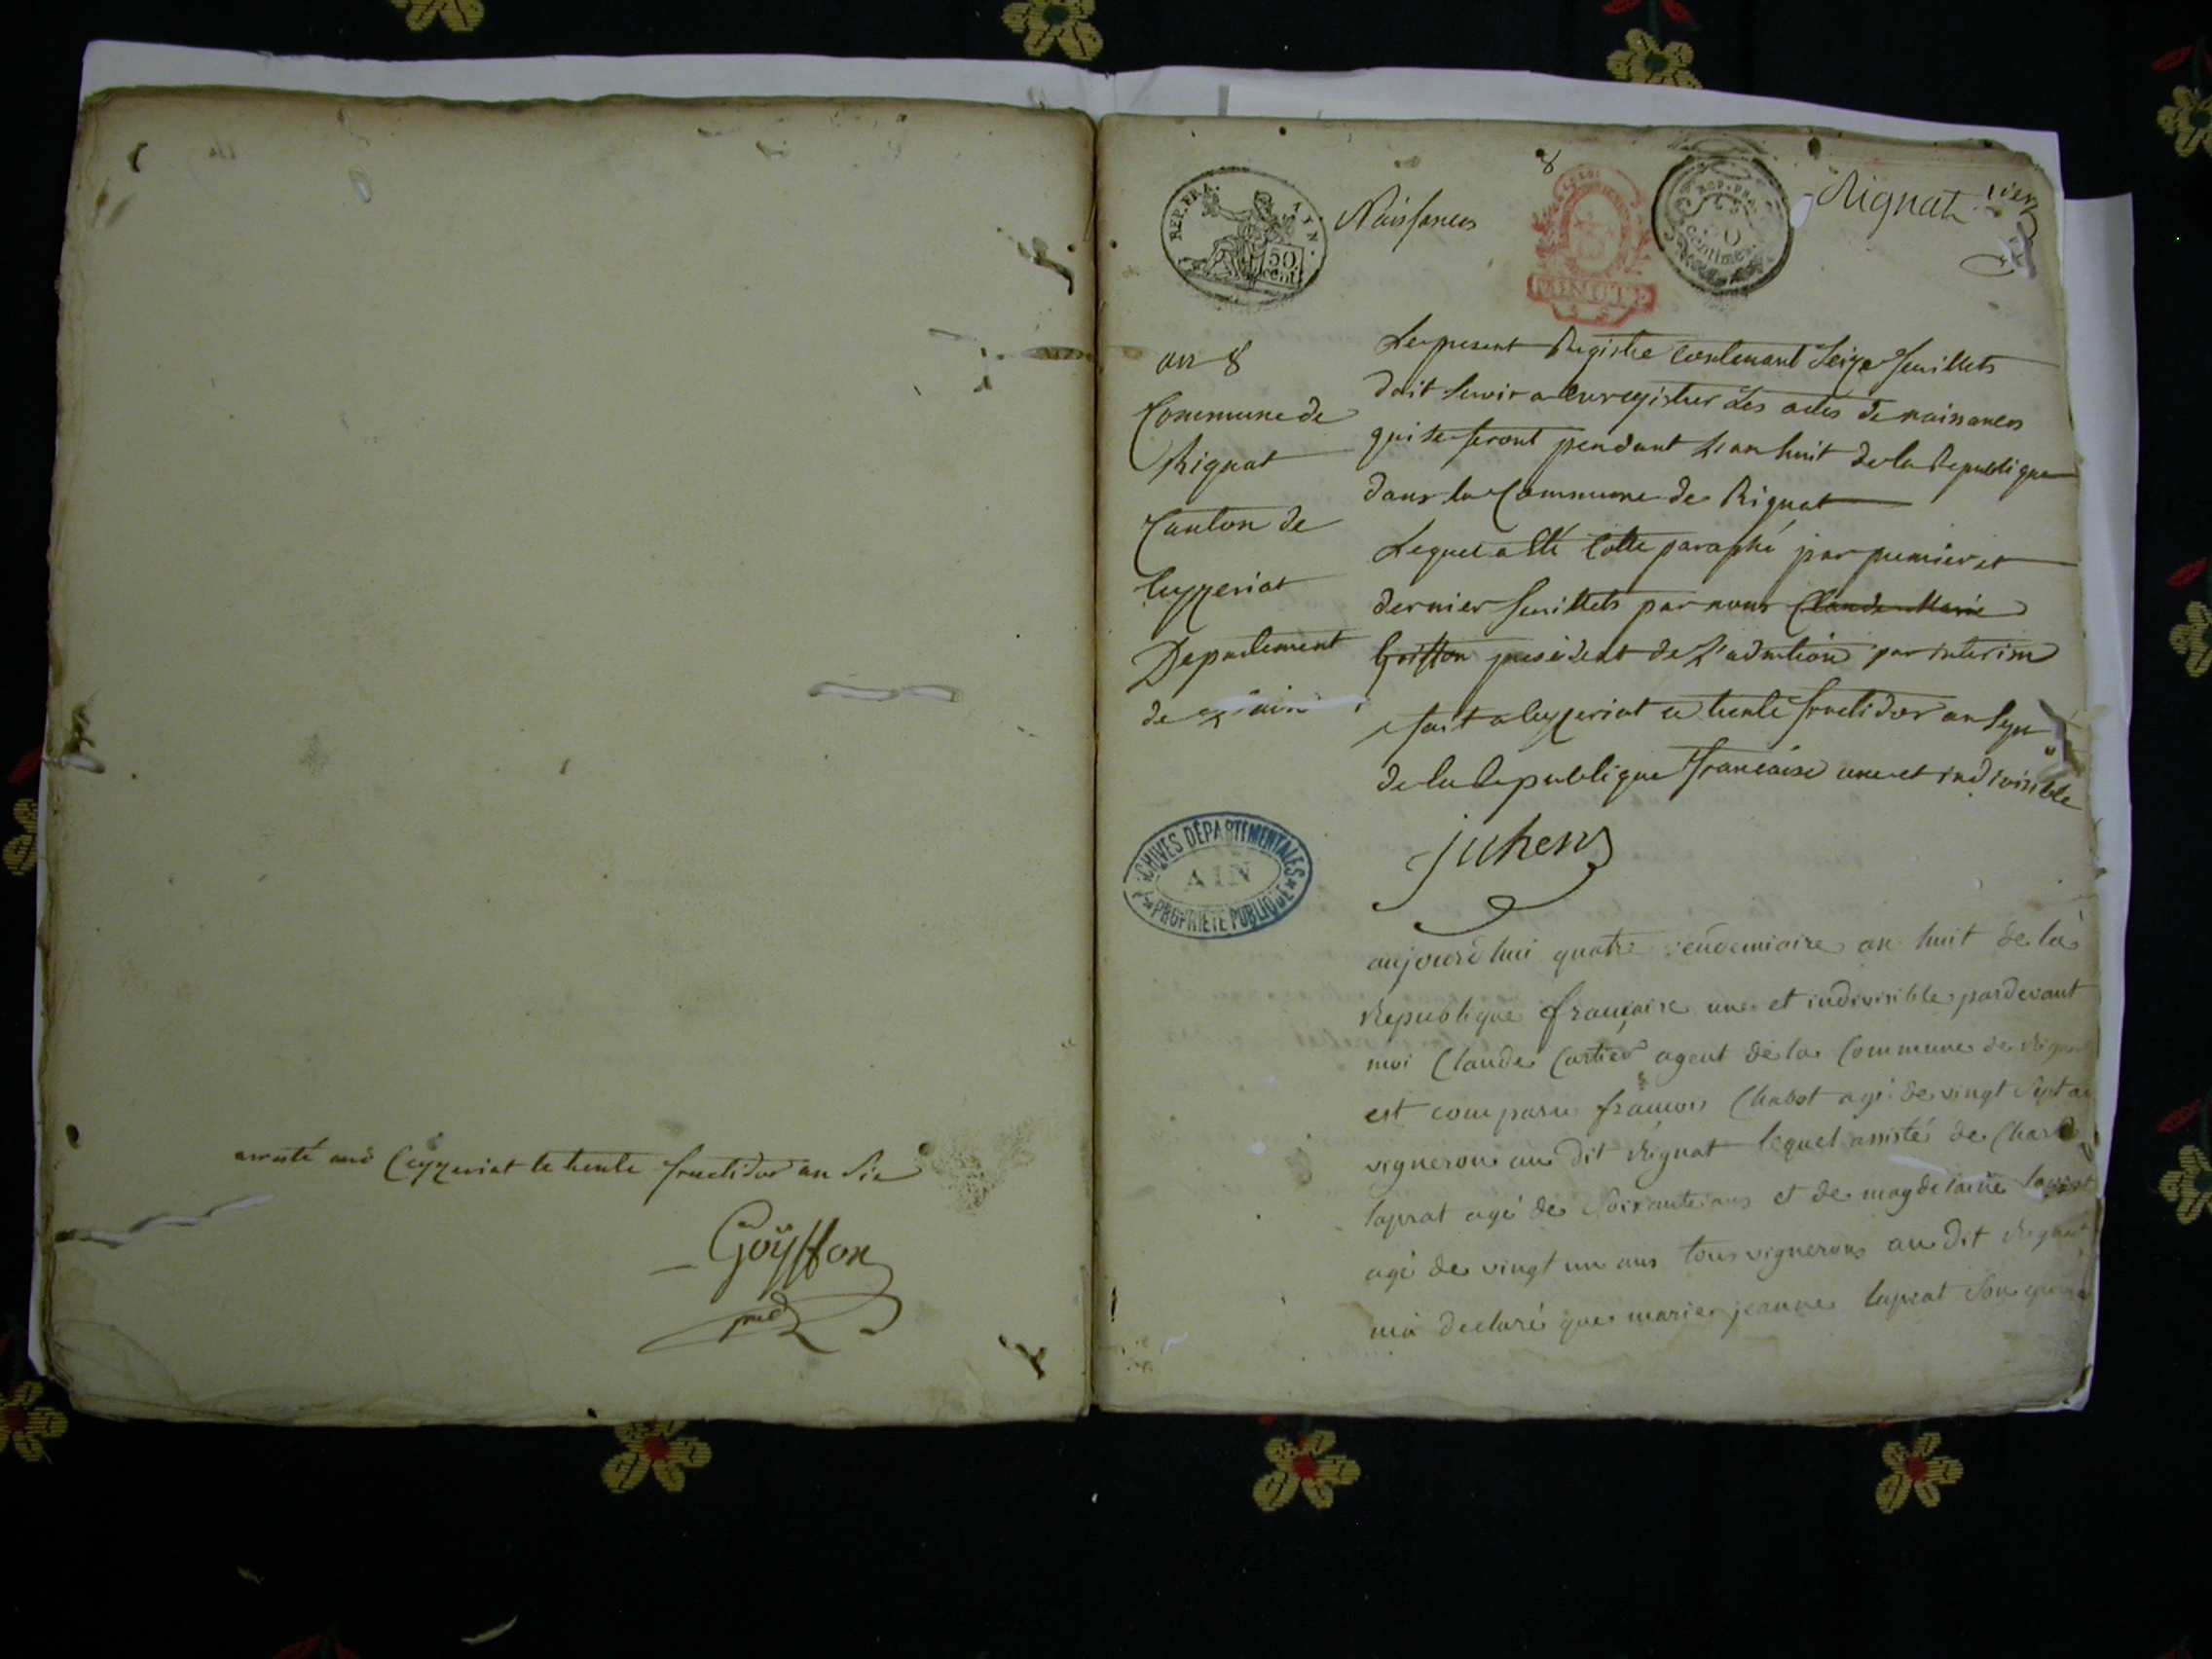 arresté a Ceyzeriat le trente fructidor an six
Goÿffon
pred
8
REP. FRA.
AIN.
50
cent.
Naissances
MINUTE
REP. FRA.
centimes
Rignat
an 8
Commune de
Rignat
Canton de
Ceyzeriat
Departement
de l'ain
Le present Registre Contenant Seize feuillets
doit servir a Enregistrer Les actes de naissances
qui se feront pendant L'an huit de la Republique
dans la Commune de Rignat
Lequel a Eté Cotté paraphé par premier et
dernier feuillets par nous Claude Marie
Goiffon president de L'adm̄tion par interim
fait a Ceyzeriat ce trente fructidor an Sept
de la Republique francaise une et indivisible
ARCHIVES DÉPARTEMENTALES
AIN
PROPRIÉTÉ PUBLIQUE
aujourd'hui quatre vendemiaire an huit de la
Republique française une et indivisible pardevant
moi Claude Cartier agent de la Commune de Rignat
est comparu francois Chabot agé de vingt Sept an
vigneron au dit Rignat lequel assisté de
laprat agé de Soixante ans et de magdelaine laprat
agé de vingt un ans tous vignerons au dit Rignat
m'a declaré que marie jeanne laprat Son epouse